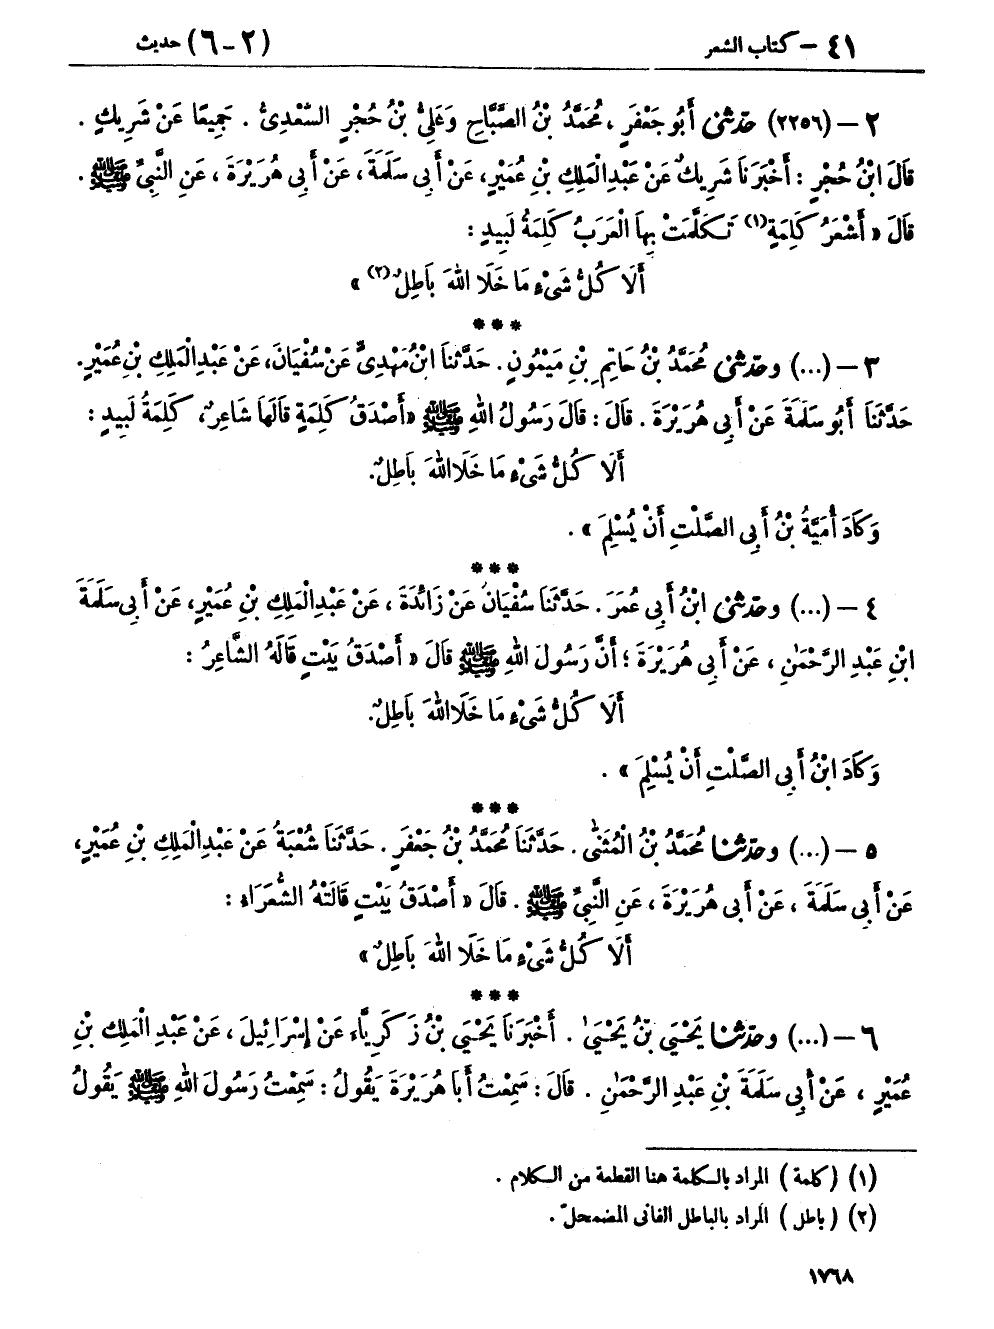 ٤١ – كتاب الشعر (٢ – ٦) حديث
٢ – (٢٢٥٦) حَدَّثَنِي أَبُو جَعْفَرٍ ، مُحَمَّدُ بْنُ الصَّبَّاحِ وَعَلِيُّ بْنُ حُجْرٍ السَّعْدِيُّ . جَمِيعًا عَنْ شَرِيكٍ .
قَالَ ابْنُ حُجْرٍ : أَخْبَرَنَا شَرِيكٌ عَنْ عَبْدِ الْمَلِكِ بْنِ عُمَيْرٍ، عَنْ أَبِي سَلَمَةَ، عَنْ أَبِي هُرَيْرَةَ ، عَنِ النَّبِيِّ ﷺ .
قَالَ « أَشْعَرُ كَلِمَةٍ(١) تَكَلَّمَتْ بِهَا الْعَرَبُ كَلِمَةُ لَبِيدٍ :
أَلَا كُلُّ شَيْءٍ مَا خَلَا اللهَ بَاطِلٌ(٢) »
***
٣ – (...) وحَدَّثَنِي مُحَمَّدُ بْنُ حَاتِمِ بْنِ مَيْمُونٍ . حَدَّثَنَا ابْنُ مَهْدِيٍّ عَنْ سُفْيَانَ، عَنْ عَبْدِ الْمَلِكِ بْنِ عُمَيْرٍ.
حَدَّثَنَا أَبُو سَلَمَةَ عَنْ أَبِي هُرَيْرَةَ . قَالَ : قَالَ رَسُولُ اللهِ ﷺ «أَصْدَقُ كَلِمَةٍ قَالَهَا شَاعِرٌ، كَلِمَةُ لَبِيدٍ :
أَلَا كُلُّ شَيْءٍ مَا خَلَا اللهَ بَاطِلٌ.
وَكَادَ أُمَيَّةُ بْنُ أَبِي الصَّلْتِ أَنْ يُسْلِمَ » .
***
٤ – (...) وحَدَّثَنِي ابْنُ أَبِي عُمَرَ . حَدَّثَنَا سُفْيَانُ عَنْ زَائِدَةَ ، عَنْ عَبْدِ الْمَلِكِ بْنِ عُمَيْرٍ، عَنْ أَبِي سَلَمَةَ
ابْنِ عَبْدِ الرَّحْمٰنِ ، عَنْ أَبِي هُرَيْرَةَ ؛ أَنَّ رَسُولَ اللهِ ﷺ قَالَ « أَصْدَقُ بَيْتٍ قَالَهُ الشَّاعِرُ :
أَلَا كُلُّ شَيْءٍ مَا خَلَا اللهَ بَاطِلٌ.
وَكَادَ ابْنُ أَبِي الصَّلْتِ أَنْ يُسْلِمَ » .
***
٥ – (...) وحَدَّثَنَا مُحَمَّدُ بْنُ الْمُثَنَّىٰ . حَدَّثَنَا مُحَمَّدُ بْنُ جَعْفَرٍ . حَدَّثَنَا شُعْبَةُ عَنْ عَبْدِ الْمَلِكِ بْنِ عُمَيْرٍ،
عَنْ أَبِي سَلَمَةَ ، عَنْ أَبِي هُرَيْرَةَ ، عَنِ النَّبِيِّ ﷺ . قَالَ « أَصْدَقُ بَيْتٍ قَالَتْهُ الشُّعَرَاءُ :
أَلَا كُلُّ شَيْءٍ مَا خَلَا اللهَ بَاطِلٌ »
***
٦ – (...) وحَدَّثَنَا يَحْيَى بْنُ يَحْيَىٰ . أَخْبَرَنَا يَحْيَى بْنُ زَكَرِيَّاءَ عَنْ إِسْرَائِيلَ ، عَنْ عَبْدِ الْمَلِكِ بْنِ
عُمَيْرٍ ، عَنْ أَبِي سَلَمَةَ بْنِ عَبْدِ الرَّحْمٰنِ . قَالَ : سَمِعْتُ أَبَا هُرَيْرَةَ يَقُولُ : سَمِعْتُ رَسُولَ اللهِ ﷺ يَقُولُ
(١) (كلمة) المراد بالكلمة هنا القطعة من الكلام .
(٢) (باطل) المراد بالباطل الفانى المضمحلّ .
١٧٦٨